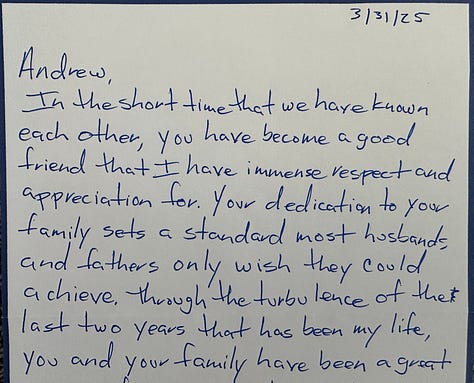 3/31/25
Andrew,
In the short time that we have known
each other, you have become a good
friend that I have immense respect and
appreciation for. Your dedication to your
family sets a standard most husbands,
and fathers only wish they could
achieve. Through the turbulence of the
last two years that has been my life,
you and your family have been a great